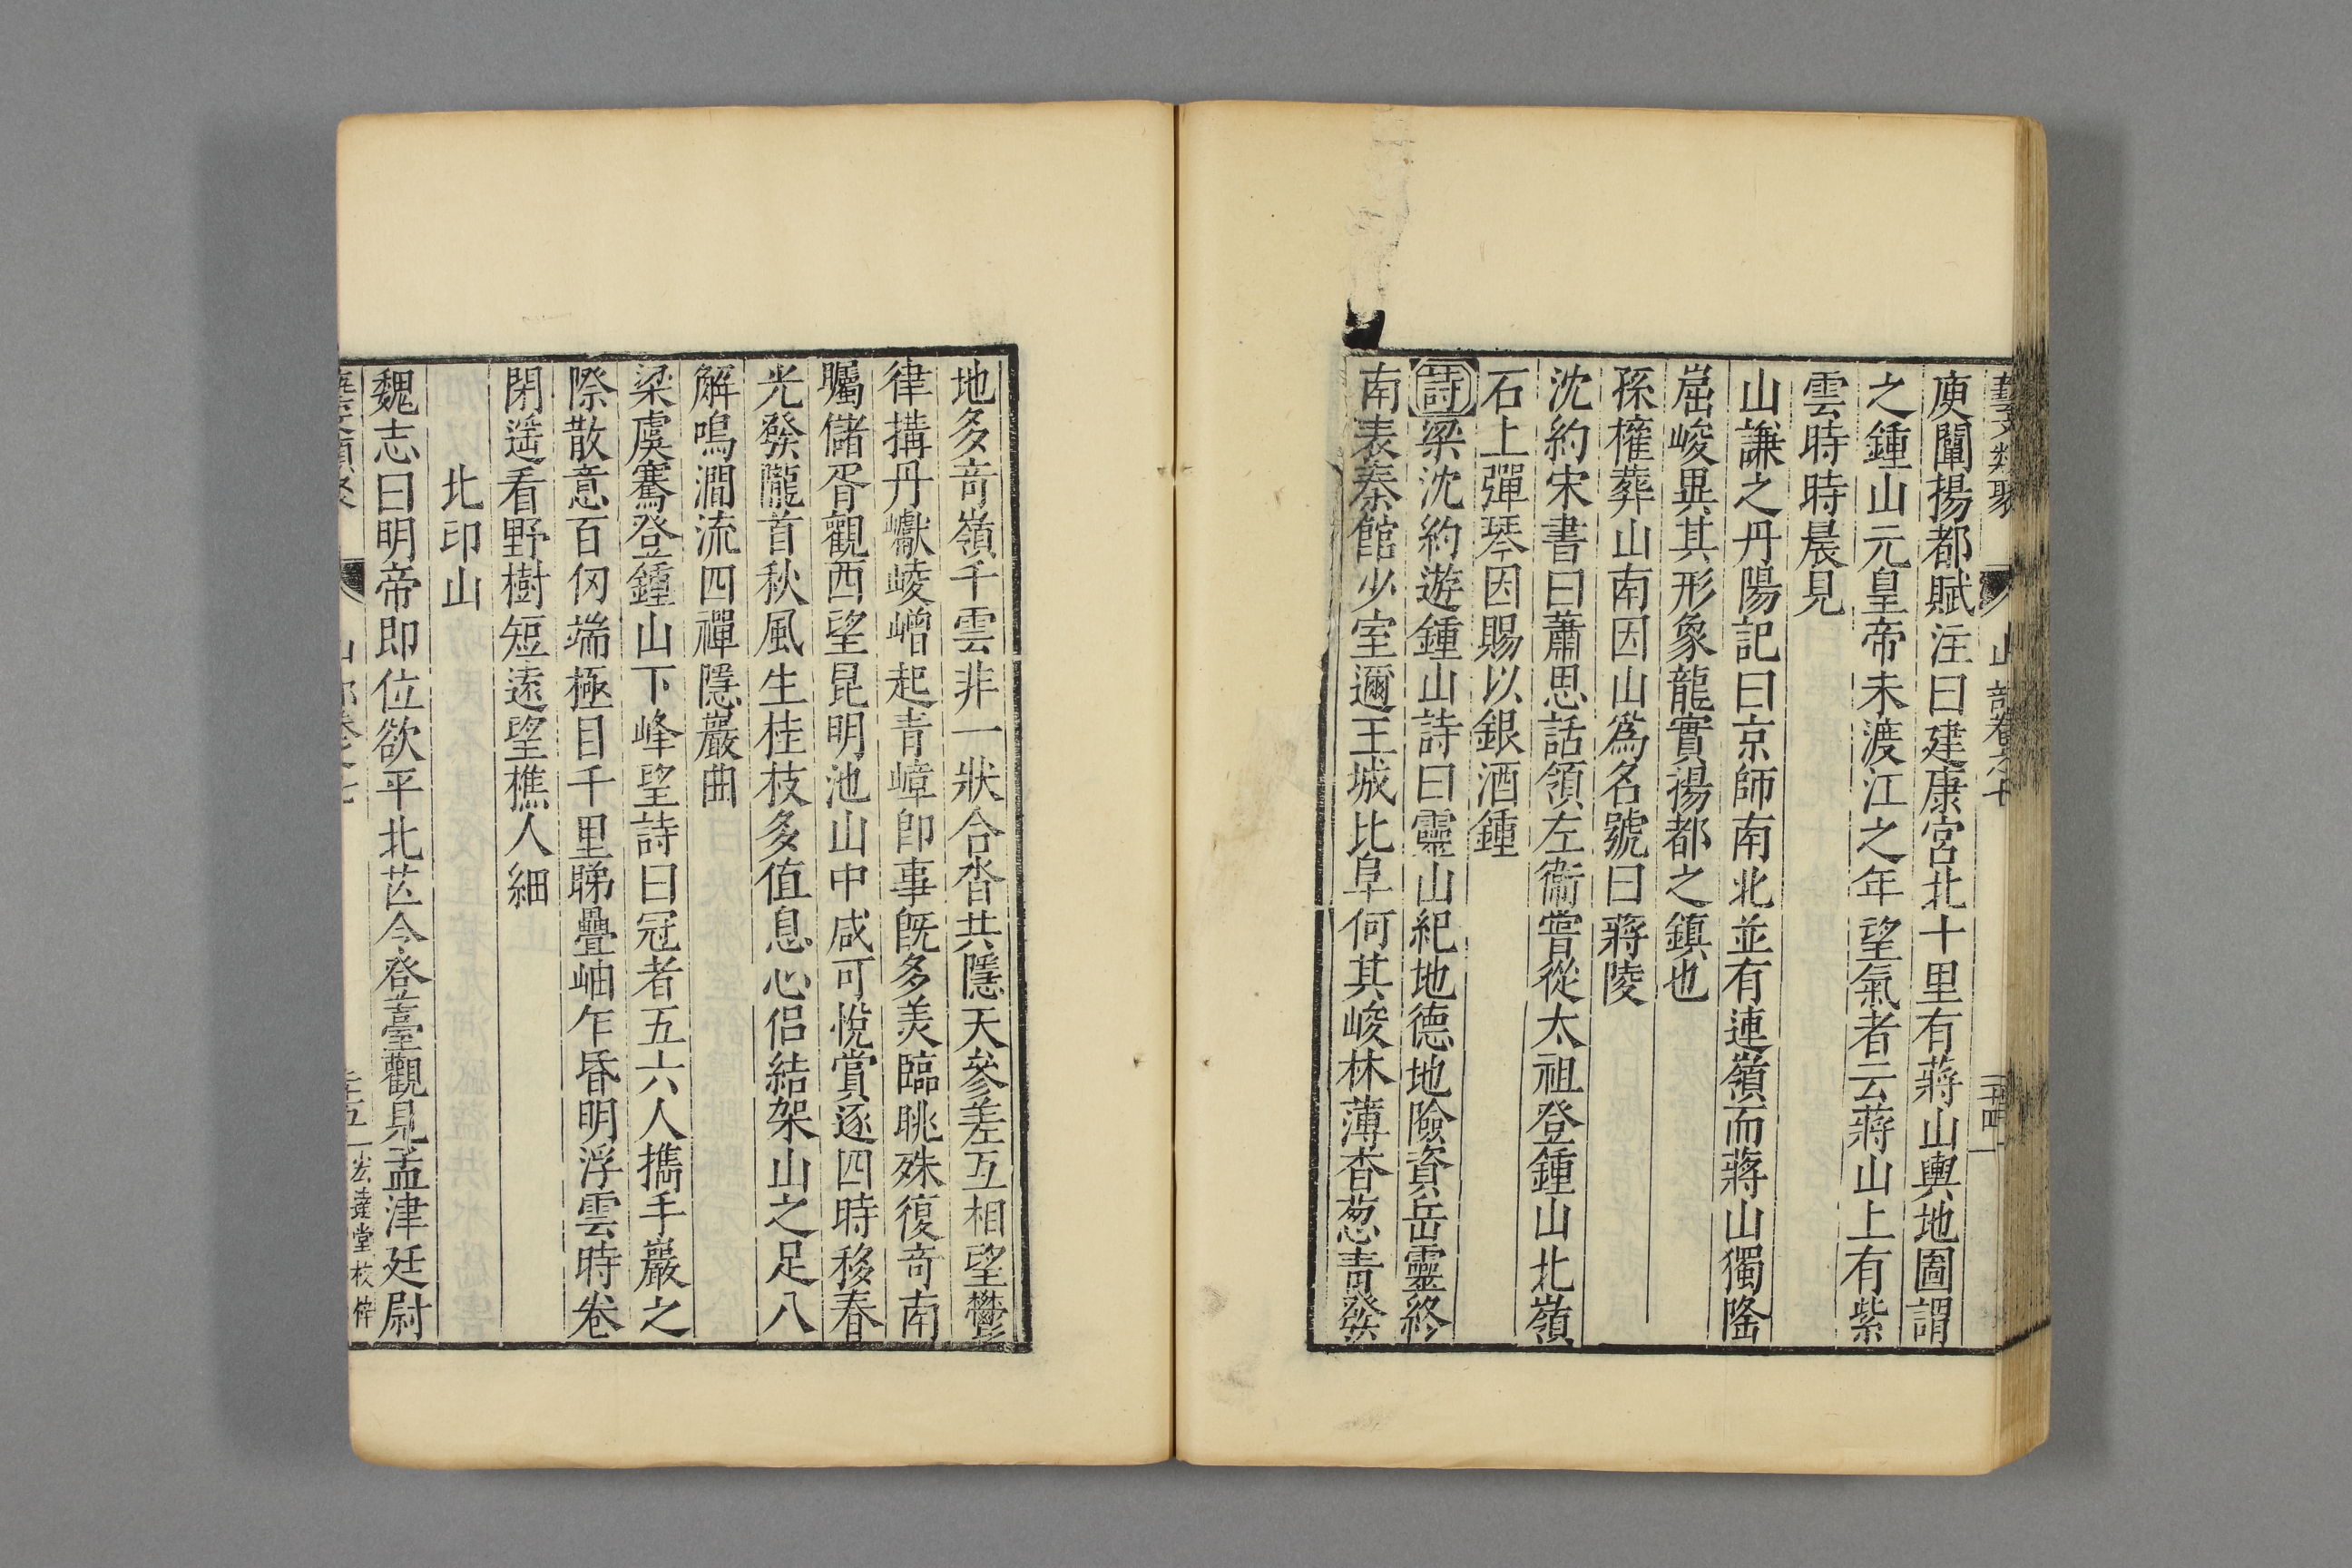 藝文類聚 山部卷之七 二十四
庾闡揚都賦注曰建康宮北十里有蔣山輿地圖謂
之鍾山元皇帝未渡江之年望氣者云蔣山上有紫
雲時時晨見
山謙之丹陽記曰京師南北並有連嶺而蔣山獨隆
崫峻異其形象龍實揚都之鎮也
孫權葬山南因山爲名號曰蔣陵
沈約宋書曰蕭思話領左衞嘗從太祖登鍾山北嶺
石上彈琴因賜以銀酒鍾
詩梁沈約遊鍾山詩曰靈山紀地德地險資岳靈終
南表秦館少室邇王城北阜何其峻林薄杳葱青發
地多奇嶺千雲非一狀合沓共隱天參差互相望鬱
律搆丹巘崚嶒起青嶂卽事旣多美臨眺殊復奇南
矚儲胥觀西望昆明池山中咸可悅賞逐四時移春
光發隴首秋風生桂枝多值息心侶結架山之足八
解鳴澗流四禪隱巖曲
梁虞騫登鍾山下峰望詩曰冠者五六人攜手巖之
際散意百仞端極目千里睇疊岫乍昏明浮雲時卷
閉遥看野樹短遠望樵人細
北卬山
魏志曰明帝即位欲平北芒令登臺觀見孟津廷尉
藝文類聚 山部卷之七 二十五 宏達堂校